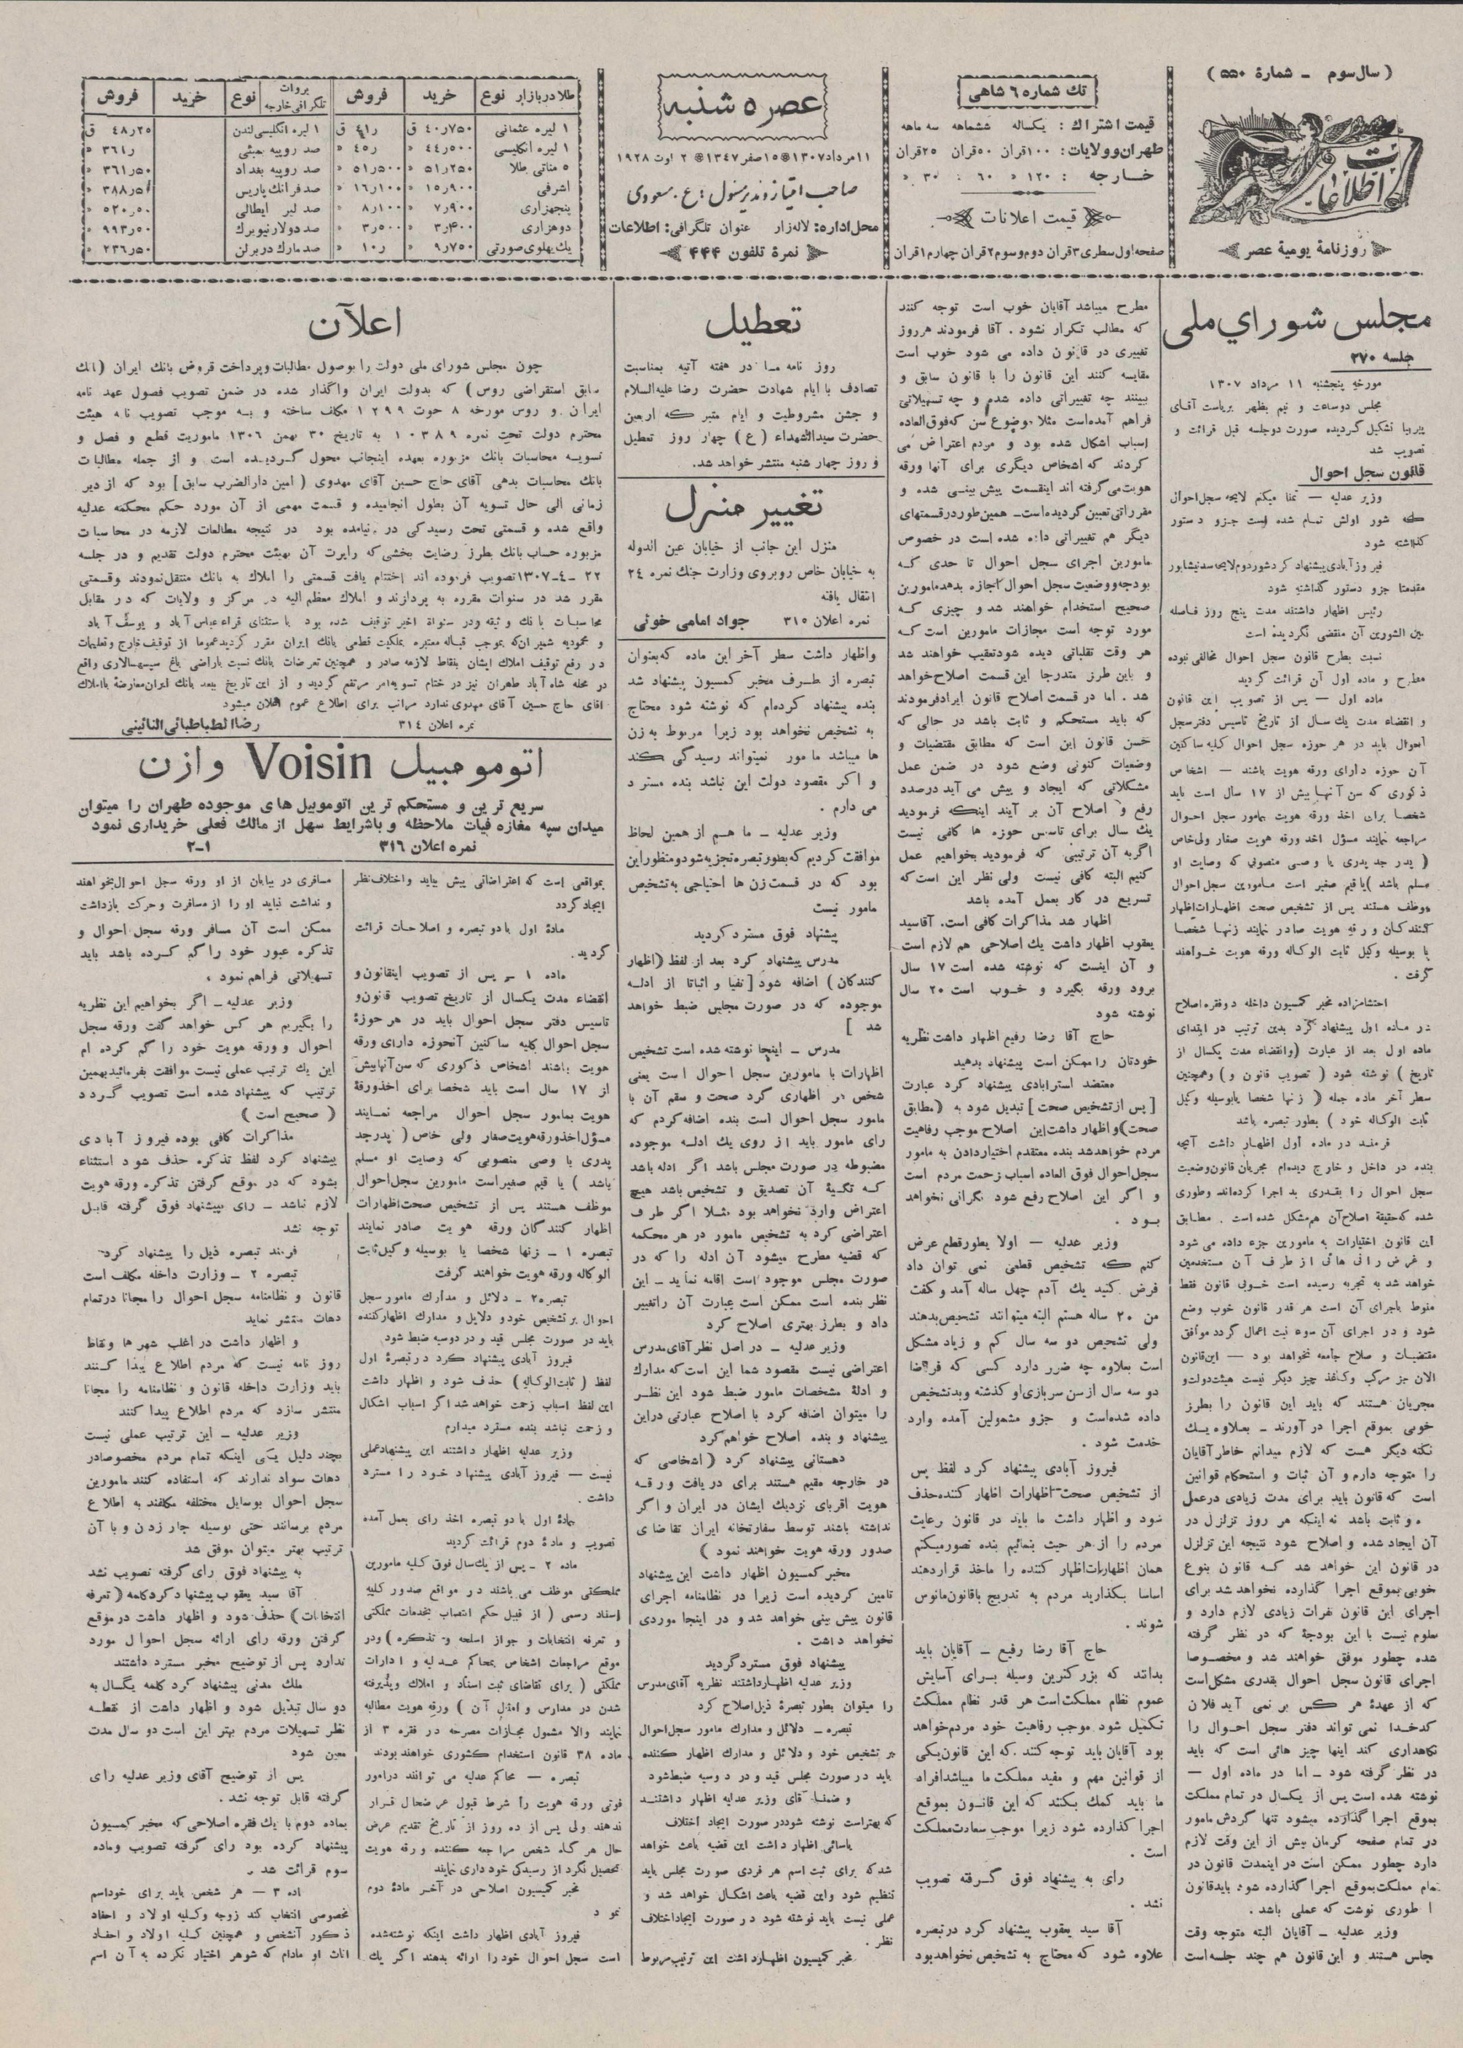 ( سال سوم - شمارهٔ ۵۵۰ )
اطلاعات
روزنامهٔ یومیهٔ عصر
تك شماره ۶ شاهی
قیمت اشتراك : یكساله ششماهه سه ماهه
طهران وولایات : ۱۰۰ قران ۵۰ قران ۲۵ قران
خارجه : ۱۲۰ » ۶۰ : ۳۰ »
قیمت اعلانات
صفحه اول سطری ۳ قران دوم وسوم ۲ قران چهارم ۱ قران
عصر ۵ شنبه
۱۱ مرداد ۱۳۰۷ * ۱۵ صفر ۱۳۴۷ * ۲ اوت ۱۹۲۸
صاحب امتیاز ومدیر مسئول : ع . مسعودی
محل اداره : لاله زار عنوان تلگرافی : اطلاعات
نمرهٔ تلفون ۴۴۴
طلا در بازار نوع خرید فروش
۱ لیره عثمانی ۴۰ر۷۵۰ ق ۴۱ر ق
۱ لیره انگلیسی ۴۴ر۵۰۰ » ۴۵ر »
۵ مناتی طلا ۵۱ر۲۵۰ » ۵۱ر۵۰۰ »
اشرفی ۱۵ر۹۰۰ » ۱۶ر۱۰۰ »
پنجهزاری ۷ر۹۰۰ » ۸ر۱۰۰ »
دوهزاری ۳ر۴۰۰ » ۳ر۵۰۰ »
یك پهلوی صورتی ۹ر۷۵۰ » ۱۰ر »
بروات تلگرافی خارجه نوع خرید فروش
۱ لیره انگلیسی لندن ۴۸ر۲۵ ق
صد روپیه بمبئی ۳۶۱ر »
صد روپیه بغداد ۳۶۱ر۵۰ »
صد فرانك پاریس ۳۸۸ر۵۰ »
صد لیر ایطالی ۵۲۰ر۵۰ »
صد دولار نیویرك ۹۹۳ر۵۰ »
صد مارك در برلن ۲۳۶ر۵۰ »
مجلس شورای ملی
جلسه ۲۷۰
مورخهٔ پنجشنبه ۱۱ مرداد ۱۳۰۷
مجلس دوساعت و نیم بظهر بریاست آقای
پیرنیا تشكیل گردیده صورت دوجلسه قبل قرائت و
تصویب شد
قانون سجل احوال
وزیر عدلیه — تمنا میكنم لایحهٔ سجل احوال
كه شور اولش تمام شده است جزو دستور
گذاشته شود
فیروزآبادی پیشنهاد كرد شور دوم لایحه سد نیشابور
مقدمتا جزو دستور گذاشته شود
رئیس اظهار داشتند مدت پنج روز فاصله
بین الشورین آن منقضی نگردیده است
نسبت بطرح قانون سجل احوال مخالفی نبوده
مطرح و ماده اول آن قرائت گردید
ماده اول — پس از تصویب این قانون
و انقضاء مدت یك سال از تاریخ تاسیس دفتر سجل
احوال باید در هر حوزه سجل احوال كلیه ساكنین
آن حوزه دارای ورقه هویت باشند — اشخاص
ذكوری كه سن آنها بیش از ۱۷ سال است باید
شخصا برای اخذ ورقه هویت بمامور سجل احوال
مراجعه نمایند مسؤل اخذ ورقه هویت صغار ولی خاص
( پدر جد پدری یا وصی منصوبی كه وصایت او
مسلم باشد ) یا قیم صغیر است مامورین سجل احوال
موظف هستند پس از تشخیص صحت اظهارات اظهار
كنندگان ورقه هویت صادر نمایند زنها شخصا
یا بوسیله وكیل ثابت الوكاله ورقه هویت خواهند
گرفت .
احتشامزاده مخبر كمسیون داخله دو فقره اصلاح
در ماده اول پیشنهاد كرد بدین ترتیب در ابتدای
ماده اول بعد از عبارت ( وانقضاء مدت یكسال از
تاریخ ) نوشته شود ( تصویب قانون و ) وهمچنین
سطر آخر ماده جمله ( زنها شخصا یا بوسیله وكیل
ثابت الوكاله خود ) بطور تبصره باشد
فرمند در ماده اول اظهار داشت آنچه
بنده در داخل و خارج دیده‌ام مجریان قانون وضعیت
سجل احوال را بقدری بد اجرا كرده‌اند وطوری
شده كه حقیقهٔ اصلاح آن هم مشكل شده است . مطابق
این قانون اختیارات به مامورین جزء داده می شود
و غرض رانی هائی از طرف آن مستخدمین
خواهد شد به تجربه رسیده است خوبی قانون فقط
منوط باجرای آن است هر قدر قانون خوب وضع
شود و در اجرای آن سوء نیت اعمال گردد موافق
مقتضیات و صلاح جامعه نخواهد بود — این قانون
الان جز مركب وكاغذ چیز دیگر نیست هیئت دولت و
مجریان هستند كه باید این قانون را بطرز
خوبی بموقع اجرا در آورند - بعلاوه یك
نكته دیگر هست كه لازم میدانم خاطر آقایان
را متوجه دارم و آن ثبات و استحكام قوانین
است كه قانون باید برای مدت زیادی در عمل
و ثابت باشد نه اینكه هر روز تزلزل در
آن ایجاد شده و اصلاح شود نتیجه این تزلزل
در قانون این خواهد شد كه قانون بنوع
خوبی بموقع اجرا گذارده نخواهد شد برای
اجرای این قانون نفرات زیادی لازم دارد و
معلوم نیست با این بودجهٔ كه در نظر گرفته
شده چطور موفق خواهند شد و مخصوصا
اجرای قانون سجل احوال بقدری مشكل است
كه از عهدهٔ هر كس بر نمی آید فلان
كدخدا نمی تواند دفتر سجل احوال را
نگاهداری كند اینها چیز هائی است كه باید
در نظر گرفته شود — اما در ماده اول —
نوشته شده است پس از یكسال در تمام مملكت
بموقع اجرا گذارده میشود تنها گردش مامور
در تمام صفحه كرمان بیش از این وقت لازم
دارد چطور ممكن است در اینمدت قانون در
تمام مملكت بموقع اجرا گذارده شود باید قانون
را طوری نوشت كه عملی باشد .
وزیر عدلیه — آقایان البته متوجه وقت
مجلس هستند و این قانون هم چند جلسه است
مطرح میباشد آقایان خوب است توجه كنند
كه مطالب تكرار نشود . آقا فرمودند هر روز
تغییری در قانون داده می شود خوب است
مقایسه كنند این قانون را با قانون سابق و
ببینند چه تغییراتی داده شده و چه تسهیلاتی
فراهم آمده است مثلا موضوع سن كه فوق العاده
اسباب اشكال شده بود و مردم اعتراض می
كردند كه اشخاص دیگری برای آنها ورقه
هویت می گرفته اند اینقسمت پیش بینی شده و
مقرراتی تعیین گردیده است - همین طور در قسمتهای
دیگر هم تغییراتی داده شده است در خصوص
مامورین اجرای سجل احوال تا حدی كه
بودجه ووضعیت سجل احوال اجازه بدهد مامورین
صحیح استخدام خواهند شد و چیزی كه
مورد توجه است مجازات مامورین است كه
هر وقت تقلباتی دیده شود تعقیب خواهند شد
و باین طرز متدرجا این قسمت اصلاح خواهد
شد . اما در قسمت اصلاح قانون ایراد فرمودند
كه باید مستحكم و ثابت باشد در حالی كه
حسن قانون این است كه مطابق مقتضیات و
وضعیات كنونی وضع شود در ضمن عمل
مشكلاتی كه ایجاد و پیش می آید درصدد
رفع و اصلاح آن بر آیند اینكه فرمودید
یك سال برای تاسیس حوزه ها كافی نیست
اگر به آن ترتیبی كه فرمودید بخواهیم عمل
كنیم البته كافی نیست ولی نظر این است كه
تسریع در كار بعمل آمده باشد
اظهار شد مذاكرات كافی است . آقا سید
یعقوب اظهار داشت یك اصلاحی هم لازم است
و آن اینست كه نوشته شده است ۱۷ سال
برود ورقه بگیرد و خوب است ۲۰ سال
نوشته شود
حاج آقا رضا رفیع اظهار داشت نظریه
خودتان را ممكن است پیشنهاد بدهید
معتضد استرابادی پیشنهاد كرد عبارت
[ پس از تشخیص صحت ] تبدیل شود به ( مطابق
صحت ) و اظهار داشت این اصلاح موجب رفاهیت
مردم خواهد شد بنده معتقدم اختیار دادن به مامور
سجل احوال فوق العاده اسباب زحمت مردم است
و اگر این اصلاح رفع شود نگرانی نخواهد
بود .
وزیر عدلیه — اولا بطور قطع عرض
كنم كه تشخیص قطعی نمی توان داد
فرض كنید یك آدم چهل ساله آمد و گفت
من ۲۰ ساله هستم البته میتوانند تشخیص بدهند
ولی تشخیص دو سه سال كم و زیاد مشكل
است بعلاوه چه ضرر دارد كسی كه فرضا
دو سه سال از سن سربازی او گذشته و بد تشخیص
داده شده است و جزو مشمولین آمده وارد
خدمت شود .
فیروز آبادی پیشنهاد كرد لفظ پس
از تشخیص صحت اظهارات اظهار كننده حذف
شود و اظهار داشت ما باید در قانون رعایت
مردم را از هر حیث بنمائیم بنده تصور میكنم
همان اظهارات اظهار كننده را ماخذ قرار دهند
اساسا بگذارید مردم به تدریج باقانون مانوس
شوند .
حاج آقا رضا رفیع — آقایان باید
بدانند كه بزرگترین وسیله برای آسایش
عموم نظام مملكت است هر قدر نظام مملكت
تكمیل شود موجب رفاهیت خود مردم خواهد
بود آقایان باید توجه كنند كه این قانون یكی
از قوانین مهم و مفید مملكت ما میباشد افراد
ما باید كمك بكنند كه این قانون بموقع
اجرا گذارده شود زیرا موجب سعادت مملكت
است .
رای به پیشنهاد فوق گرفته تصویب
نشد .
آقا سید یعقوب پیشنهاد كرد در تبصره
علاوه شود كه محتاج به تشخیص نخواهد بود
تعطیل
روز نامه مـا در هفته آتیه بمناسبت
تصادف با ایام شهادت حضرت رضا علیه السلام
و جشن مشروطیت و ایام متبركه اربعین
حضرت سیدالشهداء ( ع ) چهار روز تعطیل
و روز چهار شنبه منتشر خواهد شد .
تغییر منزل
منزل این جانب از خیابان عین الدوله
به خیابان خاص روبروی وزارت جنك نمره ۲۴
انتقال یافته
نمره اعلان ۳۱۵ جواد امامی خوئی
واظهار داشت سطر آخر این ماده كه بعنوان
تبصره از طرف مخبر كمسیون پیشنهاد شد
بنده پیشنهاد كرده‌ام كه نوشته شود محتاج
به تشخیص نخواهد بود زیرا مربوط به زن
ها میباشد مامور نمیتواند رسیدگی كند
و اگر مقصود دولت این نباشد بنده مسترد
می دارم .
وزیر عدلیه — ما هم از همین لحاظ
موافقت كردیم كه بطور تبصره تجزیه شود و منظور این
بود كه در قسمت زن ها احتیاجی به تشخیص
مامور نیست
پیشنهاد فوق مسترد گردید
مدرس پیشنهاد كرد بعد از لفظ ( اظهار
كنندگان ) اضافه شود [ نفیا و اثباتا از ادله
موجوده كه در صورت مجلس ضبط خواهد
شد ]
مدرس — اینجا نوشته شده است تشخیص
اظهارات با مامورین سجل احوال است یعنی
شخص هر اظهاری كرد صحت و سقم آن با
مامور سجل احوال است بنده اضافه كردم كه
رای مامور باید از روی یك ادله موجوده
مضبوطه در صورت مجلس باشد اگر ادله باشد
كه تكیهٔ آن تصدیق و تشخیص باشد هیچ
اعتراض وارد نخواهد بود مثلا اگر طرف
اعتراضی كرد به تشخیص مامور در هر محكمه
كه قضیه مطرح میشود آن ادله را كه در
صورت مجلس موجود است اقامه نماید - این
نظر بنده است ممكن است عبارت آن را تغییر
داد و بطرز بهتری اصلاح كرد
وزیر عدلیه — در اصل نظر آقای مدرس
اعتراضی نیست مقصود شما این است كه مدارك
و ادلهٔ مشخصات مامور ضبط شود این نظر
را میتوان اضافه كرد با اصلاح عبارتی در این
پیشنهاد و بنده اصلاح خواهم كرد
دهستانی پیشنهاد كرد ( اشخاصی كه
در خارجه مقیم هستند برای دریافت ورقه
هویت اقربای نزدیك ایشان در ایران و اگر
نداشته باشند توسط سفارتخانه ایران تقاضای
صدور ورقه هویت خواهند نمود )
مخبر كمسیون اظهار داشت این پیشنهاد
تامین گردیده است زیرا در نظامنامه اجرای
قانون پیش بینی خواهد شد و در اینجا موردی
نخواهد داشت .
پیشنهاد فوق مسترد گردید
وزیر عدلیه اظهار داشتند نظریه آقای مدرس
را میتوان بطور تبصرهٔ ذیل اصلاح كرد
تبصره - دلائل و مدارك مامور سجل احوال
بر تشخیص خود و دلائل و مدارك اظهار كننده
باید در صورت مجلس قید و در دوسیه ضبط شود
و ضمنا آقای وزیر عدلیه اظهار داشتند
كه بهتر است نوشته شود در صورت ایجاد اختلاف
یاسائی اظهار داشت این قضیه باعث خواهد
شد كه برای ثبت اسم هر فردی صورت مجلس باید
تنظیم شود و این قضیه باعث اشكال خواهد شد و
عملی نیست باید نوشته شود در صورت ایجاد اختلاف
نظر .
مخبر كمسیون اظهار داشت این ترتیب مربوط
اعلان
چون مجلس شورای ملی دولت را بوصول مطالبات و پرداخت قروض بانك ایران ( بانك
سابق استقراضی روس ) كه بدولت ایران واگذار شده در ضمن تصویب فصول عهد نامه
ایران و روس مورخه ۸ حوت ۱۲۹۹ مكلف ساخته و به موجب تصویب نامه هیئت
محترم دولت تحت نمره ۱۰۳۸۹ به تاریخ ۳۰ بهمن ۱۳۰۶ ماموریت قطع و فصل و
تسویه محاسبات بانك مزبوره بعهده اینجانب محول گردیده است و از جمله مطالبات
بانك محاسبات بدهی آقای حاج حسین آقای مهدوی ( امین دارالضرب سابق ) بود كه از دیر
زمانی الی حال تسویه آن بطول انجامیده و قسمت مهمی از آن مورد حكم محكمه عدلیه
واقع شده و قسمتی تحت رسیدگی در نیامده بود در نتیجه مطالعات لازمه در محاسبات
مزبوره حساب بانك بطرز رضایت بخشی كه راپرت آن بهیئت محترم دولت تقدیم و در جلسه
۲۲ -۴-۱۳۰۷ تصویب فرموده اند اختتام یافت قسمتی را املاك به بانك منتقل نمودند و قسمتی
مقرر شد در سنوات مقرره به پردازند و املاك معظم الیه در مركز و ولایات كه در مقابل
محاسبات بانك وثیقه ودر سنواة اخیر توقیف شده بود باستثنای قراء عباس آباد و یوسف آباد
و محمودیه شمیران كه بموجب قباله معتبره بملكیت قطعی بانك ایران مقرر گردید عموما از توقیف خارج و تعلیمات
در رفع توقیف املاك ایشان بنقاط لازمه صادر و همچنین تعرضات بانك نسبت باراضی باغ سپهسالاری واقع
در محله شاه آباد طهران نیز در ختام تسویه امر مرتفع گردید و از این تاریخ ببعد بانك ایران معارضهٔ با املاك
آقای حاج حسین آقای مهدوی ندارد مراتب برای اطلاع عموم اعلان میشود
نمره اعلان ۳۱۴ رضا الطباطبائی النائینی
اتومومبیل Voisin وازن
سریع ترین و مستحكم ترین اتوموبیل های موجوده طهران را میتوان
میدان سپه مغازه فیات ملاحظه و باشرایط سهل از مالك فعلی خریداری نمود
نمره اعلان ۳۱۶ ۱-۲
بمواقعی است كه اعتراضاتی پیش بیاید واختلاف نظر
ایجاد گردد
مادهٔ اول با دو تبصره و اصلاحات قرائت
گردید .
ماده ۱ — پس از تصویب اینقانون و
انقضاء مدت یكسال از تاریخ تصویب قانون و
تاسیس دفتر سجل احوال باید در هر حوزهٔ
سجل احوال كلیه ساكنین آنحوزه دارای ورقه
هویت باشند اشخاص ذكوری كه سن آنها بیش
از ۱۷ سال است باید شخصا برای اخذ ورقهٔ
هویت بمامور سجل احوال مراجعه نمایند
مسؤل اخذ ورقه هویت صغار ولی خاص ( پدر جد
پدری یا وصی منصوبی كه وصایت او مسلم
باشد ) یا قیم صغیر است مامورین سجل احوال
موظف هستند پس از تشخیص صحت اظهارات
اظهار كنندگان ورقه هویت صادر نمایند
تبصره ۱ - زنها شخصا یا بوسیله وكیل ثابت
الوكاله ورقه هویت خواهند گرفت
تبصره ۲ - دلائل و مدارك مامور سجل
احوال بر تشخیص خود و دلایل و مدارك اظهار كننده
باید در صورت مجلس قید و در دوسیه ضبط شود .
فیروز آبادی پیشنهاد كرد در تبصرهٔ اول
لفظ ( ثابت الوكاله ) حذف شود و اظهار داشت
این لفظ اسباب زحمت خواهد شد اگر اسباب اشكال
و زحمت نباشد بنده مسترد میدارم
وزیر عدلیه اظهار داشتند این پیشنهاد عملی
نیست — فیروز آبادی پیشنهاد خود را مسترد
داشت .
بمادهٔ اول با دو تبصره اخذ رای بعمل آمده
تصویب و مادهٔ دوم قرائت گردید
ماده ۲ - پس از یك سال فوق كلیه مامورین
مملكتی موظف می باشند در مواقع صدور كلیهٔ
اسناد رسمی ( از قبیل حكم انتصاب بخدمات مملكتی
و تعرفه انتخابات و جواز اسلحه و تذكره ) و در
موقع مراجعات اشخاص بمحاكم عدلیه و ادارات
مملكتی ( برای تقاضای ثبت اسناد و املاك و پذیرفته
شدن در مدارس و امثال آن ) ورقه هویت مطالبه
نمایند والا مشمول مجازات مصرحه در فقره ۳ از
ماده ۳۸ قانون استخدام كشوری خواهند بود
تبصره — محاكم عدلیه می توانند در امور
فوتی ورقه هویت را شرط قبول عرضحال قرار
ندهند ولی پس از ده روز از تاریخ تقدیم عرض
حال هر گاه شخص مراجعه كننده ورقه هویت
تحصیل نكرد از رسیدگی خود داری نمایند
مخبر كمیسیون اصلاحی در آخر مادهٔ دوم
نمود
فیروز آبادی اظهار داشت اینكه نوشته شده
است سجل احوال خود را ارائه بدهند اگر یك
مسافری در بیابان از او ورقه سجل احوال بخواهند
و نداشت نباید او را از مسافرت و حركت بازداشت
ممكن است آن مسافر ورقه سجل احوال و
تذكره عبور خود را گم كرده باشد باید
تسهیلاتی فراهم نمود .
وزیر عدلیه — اگر بخواهیم این نظریه
را بگیریم هر كس خواهد گفت ورقه سجل
احوال و ورقه هویت خود را گم كرده ام
این یك ترتیب عملی نیست موافقت بفرمائید بهمین
ترتیب كه پیشنهاد شده است تصویب گردد
( صحیح است )
مذاكرات كافی بوده فیروز آبادی
پیشنهاد كرد لفظ تذكره حذف شود استثناء
بشود كه در موقع گرفتن تذكره ورقه هویت
لازم نباشد — رای به پیشنهاد فوق گرفته قابل
توجه نشد
فرمند تبصره ذیل را پیشنهاد كرد .
تبصره ۲ — وزارت داخله مكلف است
قانون و نظامنامه سجل احوال را مجانا در تمام
دهات منتشر نماید
و اظهار داشت در اغلب شهر ها و نقاط
روز نامه نیست كه مردم اطلاع پیدا كنند
باید وزارت داخله قانون و نظامنامه را مجانا
منتشر سازد كه مردم اطلاع پیدا كنند
وزیر عدلیه — این ترتیب عملی نیست
بچند دلیل یكی اینكه تمام مردم مخصوصا در
دهات سواد ندارند كه استفاده كنند مامورین
سجل احوال بوسایل مختلفه مكلفند به اطلاع
مردم برسانند حتی بوسیله جار زدن و با آن
ترتیب بهتر میتوان موفق شد
به پیشنهاد فوق رای گرفته تصویب نشد
آقا سید یعقوب پیشنهاد كرد كلمه ( تعرفه
انتخابات ) حذف شود و اظهار داشت در موقع
گرفتن ورقه رای ارائه سجل احوال مورد
ندارد پس از توضیح مخبر مسترد داشتند
ملك مدنی پیشنهاد كرد كلمه یكسال به
دو سال تبدیل شود و اظهار داشت از نقطه
نظر تسهیلات مردم بهتر این است دو سال مدت
معین شود
پس از توضیح آقای وزیر عدلیه رای
گرفته قابل توجه نشد .
بماده دوم با یك فقره اصلاحی كه مخبر كمیسیون
پیشنهاد كرده بود رای گرفته تصویب و ماده
سوم قرائت شد .
ماده ۳ — هر شخص باید برای خود اسم
مخصوصی انتخاب كند زوجه و كلیه اولاد و احفاد
ذكور آنشخص و همچنین كلیه اولاد و احفاد
اناث او مادام كه شوهر اختیار نكرده به آن اسم